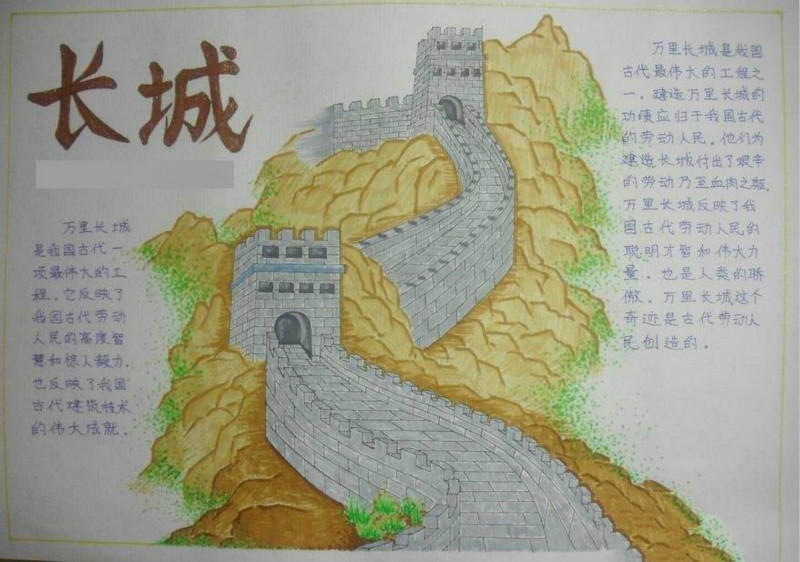 长城
万里长城
是我国古代一
项最伟大的工
程。它反映了
我国古代劳动
人民的高度智
慧和惊人毅力.
也反映了我国
古代建筑技术
的伟大成就.
万里长城是我国
古代最伟大的工程之
一，建造万里长城的
功绩应归于我国古代
的劳动人民。他们为
建造长城付出了艰辛
的劳动乃至血肉之躯.
万里长城反映了我
国古代劳动人民的
聪明才智和伟大力
量，也是人类的骄
傲。万里长城这个
奇迹是古代劳动人
民创造的.